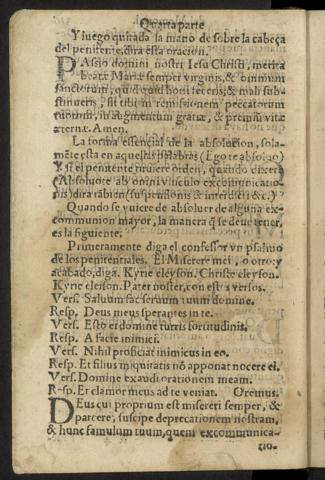 Quarta parte
Y luego quitada la mano de sobre la cabeça
del penitente, dira esta oracion.
PAssio domini nostri Iesu Christi, merita
beatæ Mariæ semper virginis, & omnium
sanctorum, quid quid boni feceris, & mali sub-
stinueris, sit tibi in remissionem peccatorum
tuorum, in augmentum gratiæ, & premiũ vitæ
æternæ. Amen.
La forma essencial de la absolucion, sola-
mẽte esta en aquestas palabras (Ego te absoluo)
Y si el penitente tuuiere orden, quando dixere
(Absoluo te ab omni vinculo excommunicatio
nis) dira tãbien (suspensionis & interdicti &c.)
Quando se vuiere de absoluer de alguna ex-
communion mayor, la manera q̃ se deue tener,
es la siguiente.
Primeramente diga el confessor vn psalmo
de los penitentiales. El Miserere mei, o otro: y
acabado, diga. Kyrie eleyson. Christe eleyson.
Kyrie eleison. Pater noster, con estos versos.
Vers. Saluum fac seruum tuum domine.
Resp. Deus meus sperantem in te.
Vers. Esto ei domine turris fortitudinis.
Resp. A facie inimici.
Vers. Nihil proficiat inimicus in eo.
Resp. Et filius iniquitatis nõ apponat nocere ei.
Vers. Domine exaudi orationem meam.
Resp. Et clamor meus ad te veniat. Oremus.
DEus cui proprium est misereri semper, &
parcere, suscipe deprecationem nostram,
& hunc famulum tuum, quem excommunica-
tio-